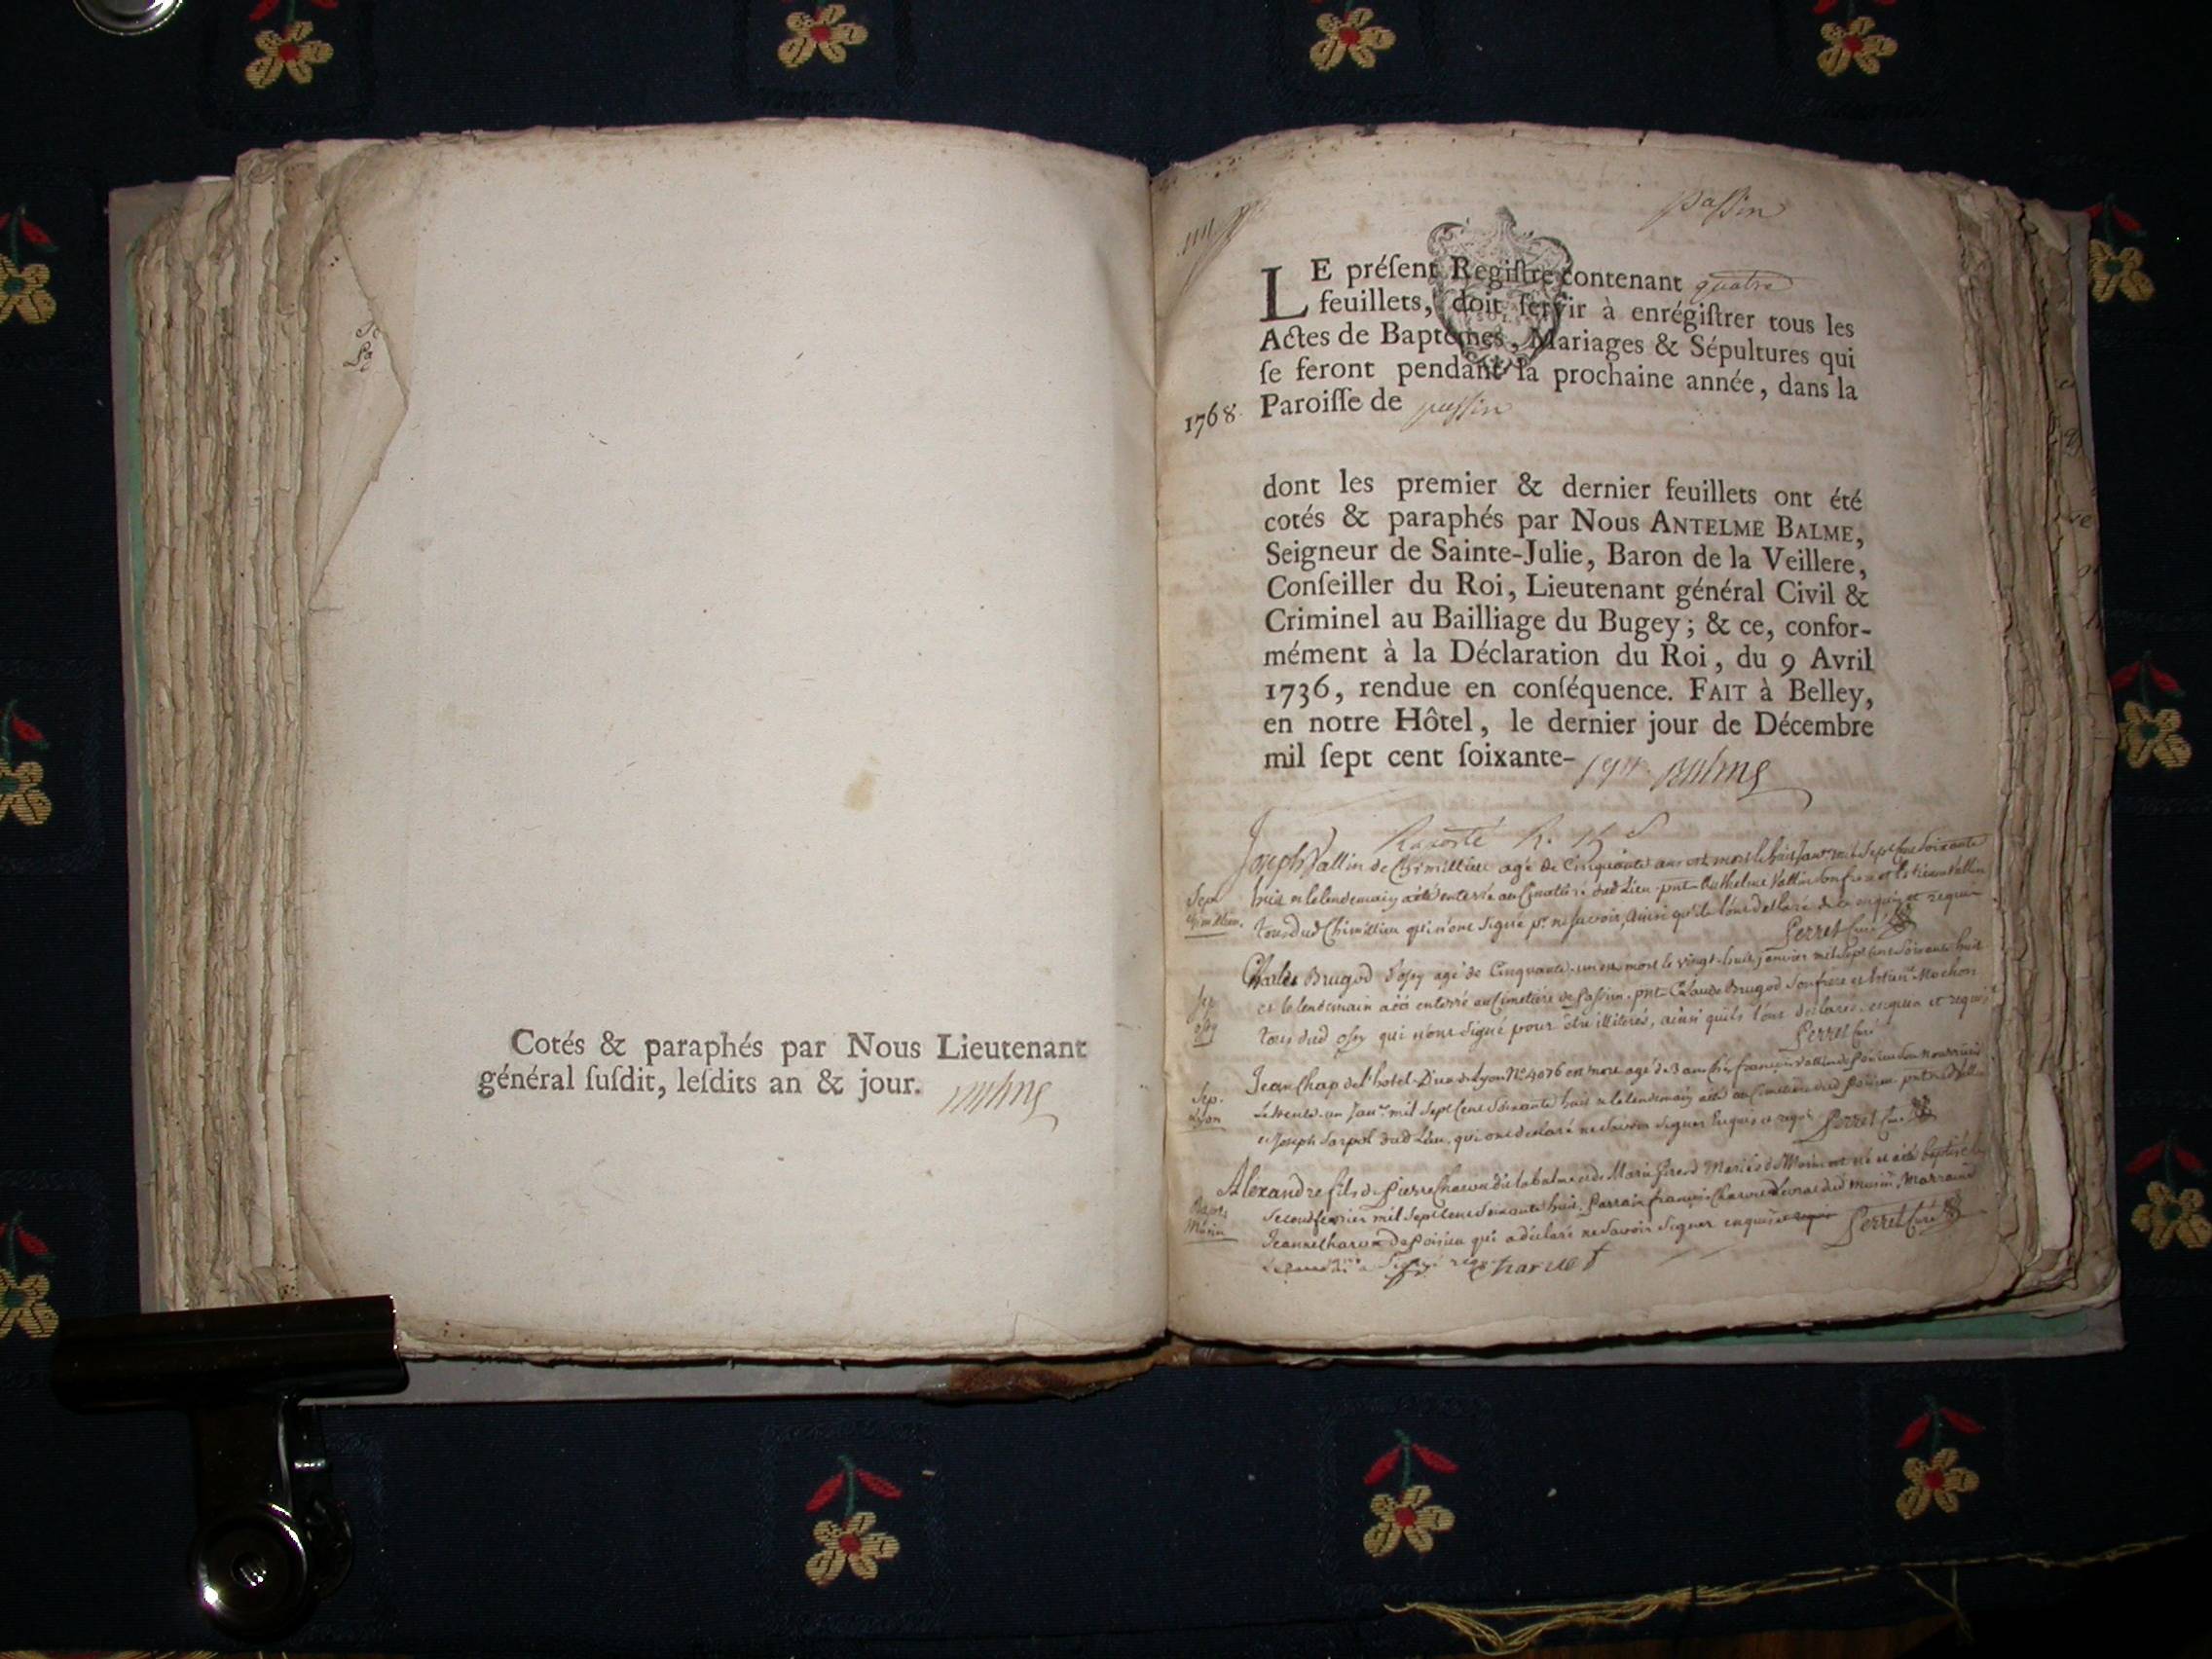 Cotés & paraphés par Nous Lieutenant
général ſuſdit, leſdits an & jour.
Balme
passin
LE préſent Regiſtre contenant quatre
feuillets, doit ſervir à enrégiſtrer tous les
Actes de Baptêmes, Mariages & Sépultures qui
ſe feront pendant la prochaine année, dans la
1768. Paroiſſe de passin
dont les premier & dernier feuillets ont été
cotés & paraphés par Nous ANTELME BALME,
Seigneur de Sainte-Julie, Baron de la Veillere,
Conſeiller du Roi, Lieutenant général Civil &
Criminel au Bailliage du Bugey; & ce, confor-
mément à la Déclaration du Roi, du 9 Avril
1736, rendue en conſéquence. FAIT à Belley,
en notre Hôtel, le dernier jour de Décembre
mil ſept cent ſoixante-sept. Balme
Joseph Vallin de Chimillieu agé de Cinquante ans est mort le huit Janv. mil Sept Cent Soixante
huit et le lendemain a été enterré au Cimetière dud Lieu. pnt Anthelme Vallin son frere et Vallin
tous dud Chimillieu qui n'ont signé pr. ne sçavoir, ainsi qu'ils l'ont déclaré de ce enquis et requis
Perret Curé
Charles Brugod d'ossy agé de Cinquante-un est mort le vingt-huit janvier mil Sept Cent Soixante huit
et le lendemain a été enterré au Cimetière de Passin. pnt Claude Brugod son frere et Mochon
Sep. ossy
tous dud ossy qui n'ont signé pour être illiterés, ainsi quils l'ont declaré, enquis et requis
Perret Curé
Jean Chap de l'hotel-Dieu de Lyon No. 4076 est mort agé de 3 ans chés françois Vallin de Poisieu Son Nourricier
Sep. Lyon
Le trente-un Janv. mil Sept Cent Soixante huit et le lendemain au Cimetière dud Vallin
et Joseph dud Lieu, qui ont declaré ne Savoir Signer Enquis et reqs. Perret Curé
Alexandre fils de Pierre Charvet de la balme et de Marie Mariés de Musin est né et a été baptisé le
Bapt. Musin
Second fevrier mil Sept Cent Soixante huit. Parrain françois Charvet dud musin, Marraine
Jeanne Charvet de Poisieu qui a déclaré ne Savoir Signer enquise Perret Curé
Charvet